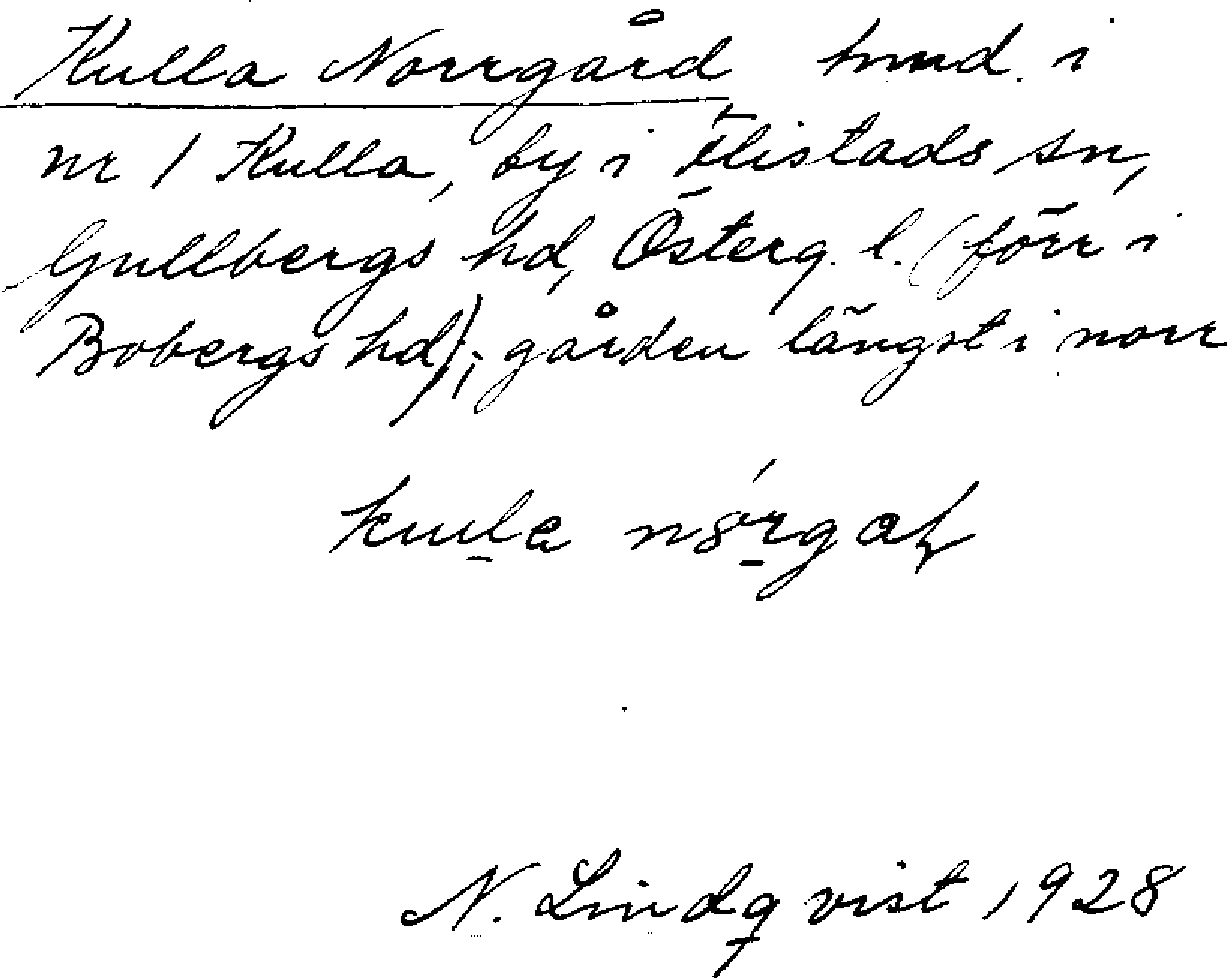 Kulla Norrgård hmd. i
nr 1 Kulla, by i Flistads sn,
Gullbergs hd, Österg. l. (förr i
Bobergs hd); gården längst i norr
N. Lindqvist 1928